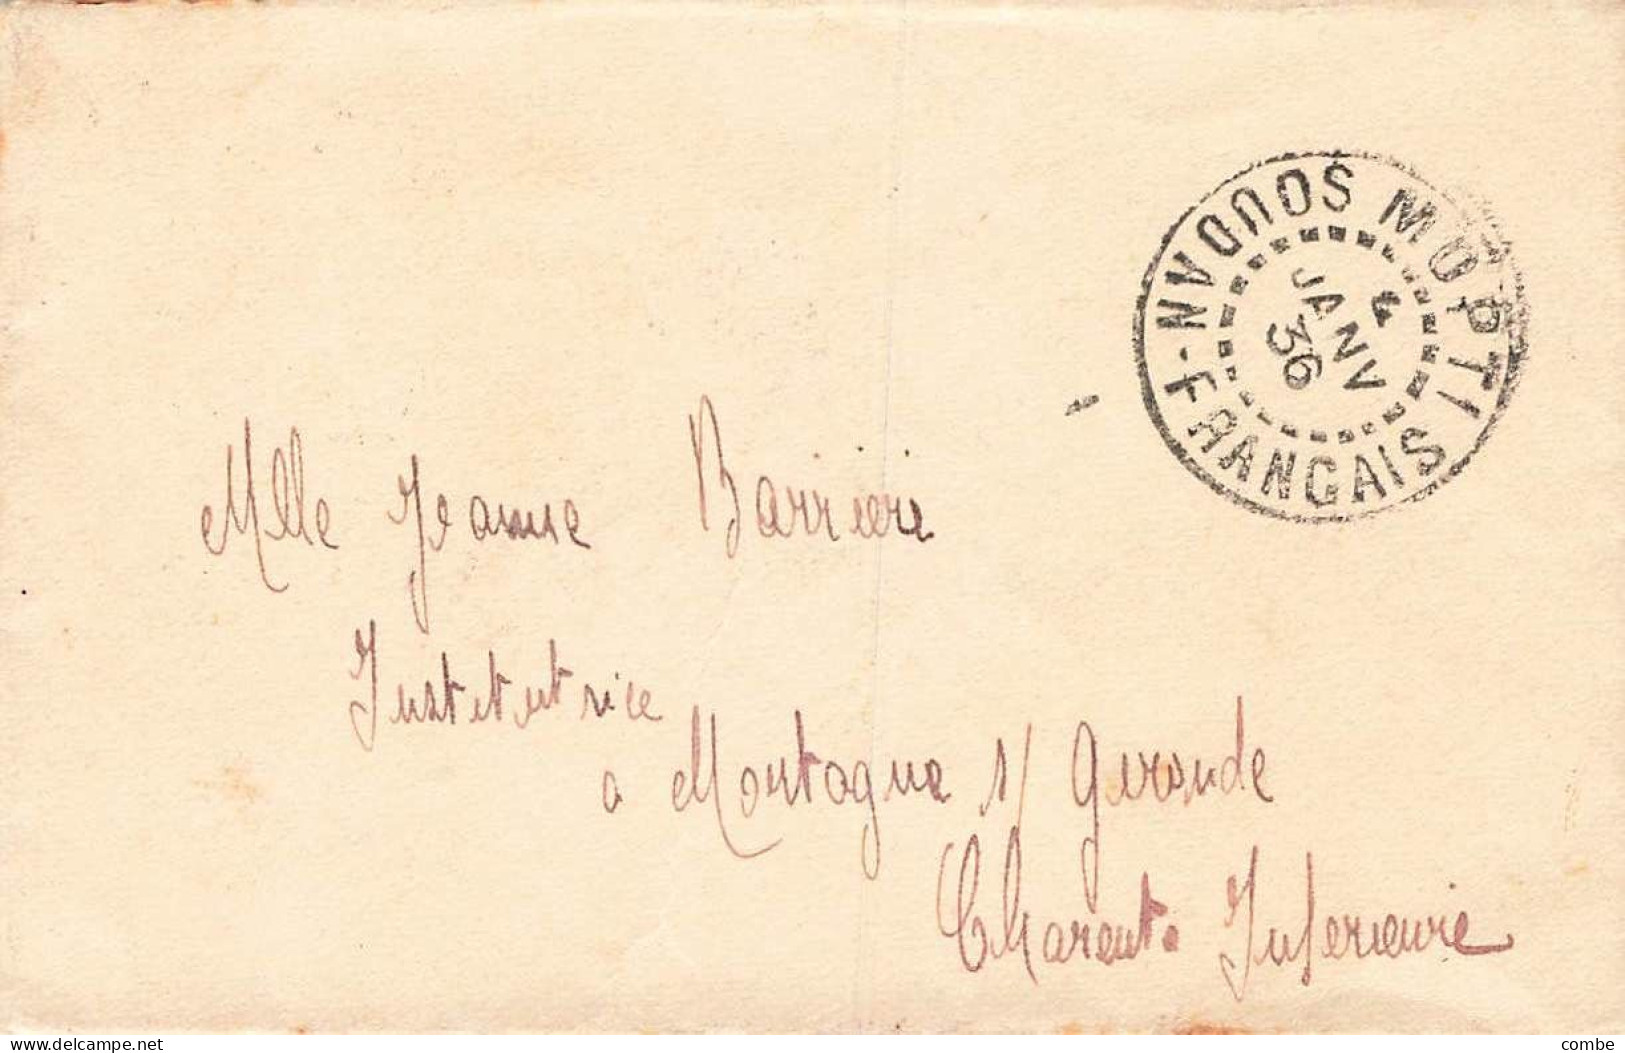 MOPTI
SOUDAN-FRANCAIS
4
JANV
36
Mlle Jeanne Barrière
Institutrice
a Mortagne s/ Gironde
Charente Inferieure
www.delcampe.net
combe